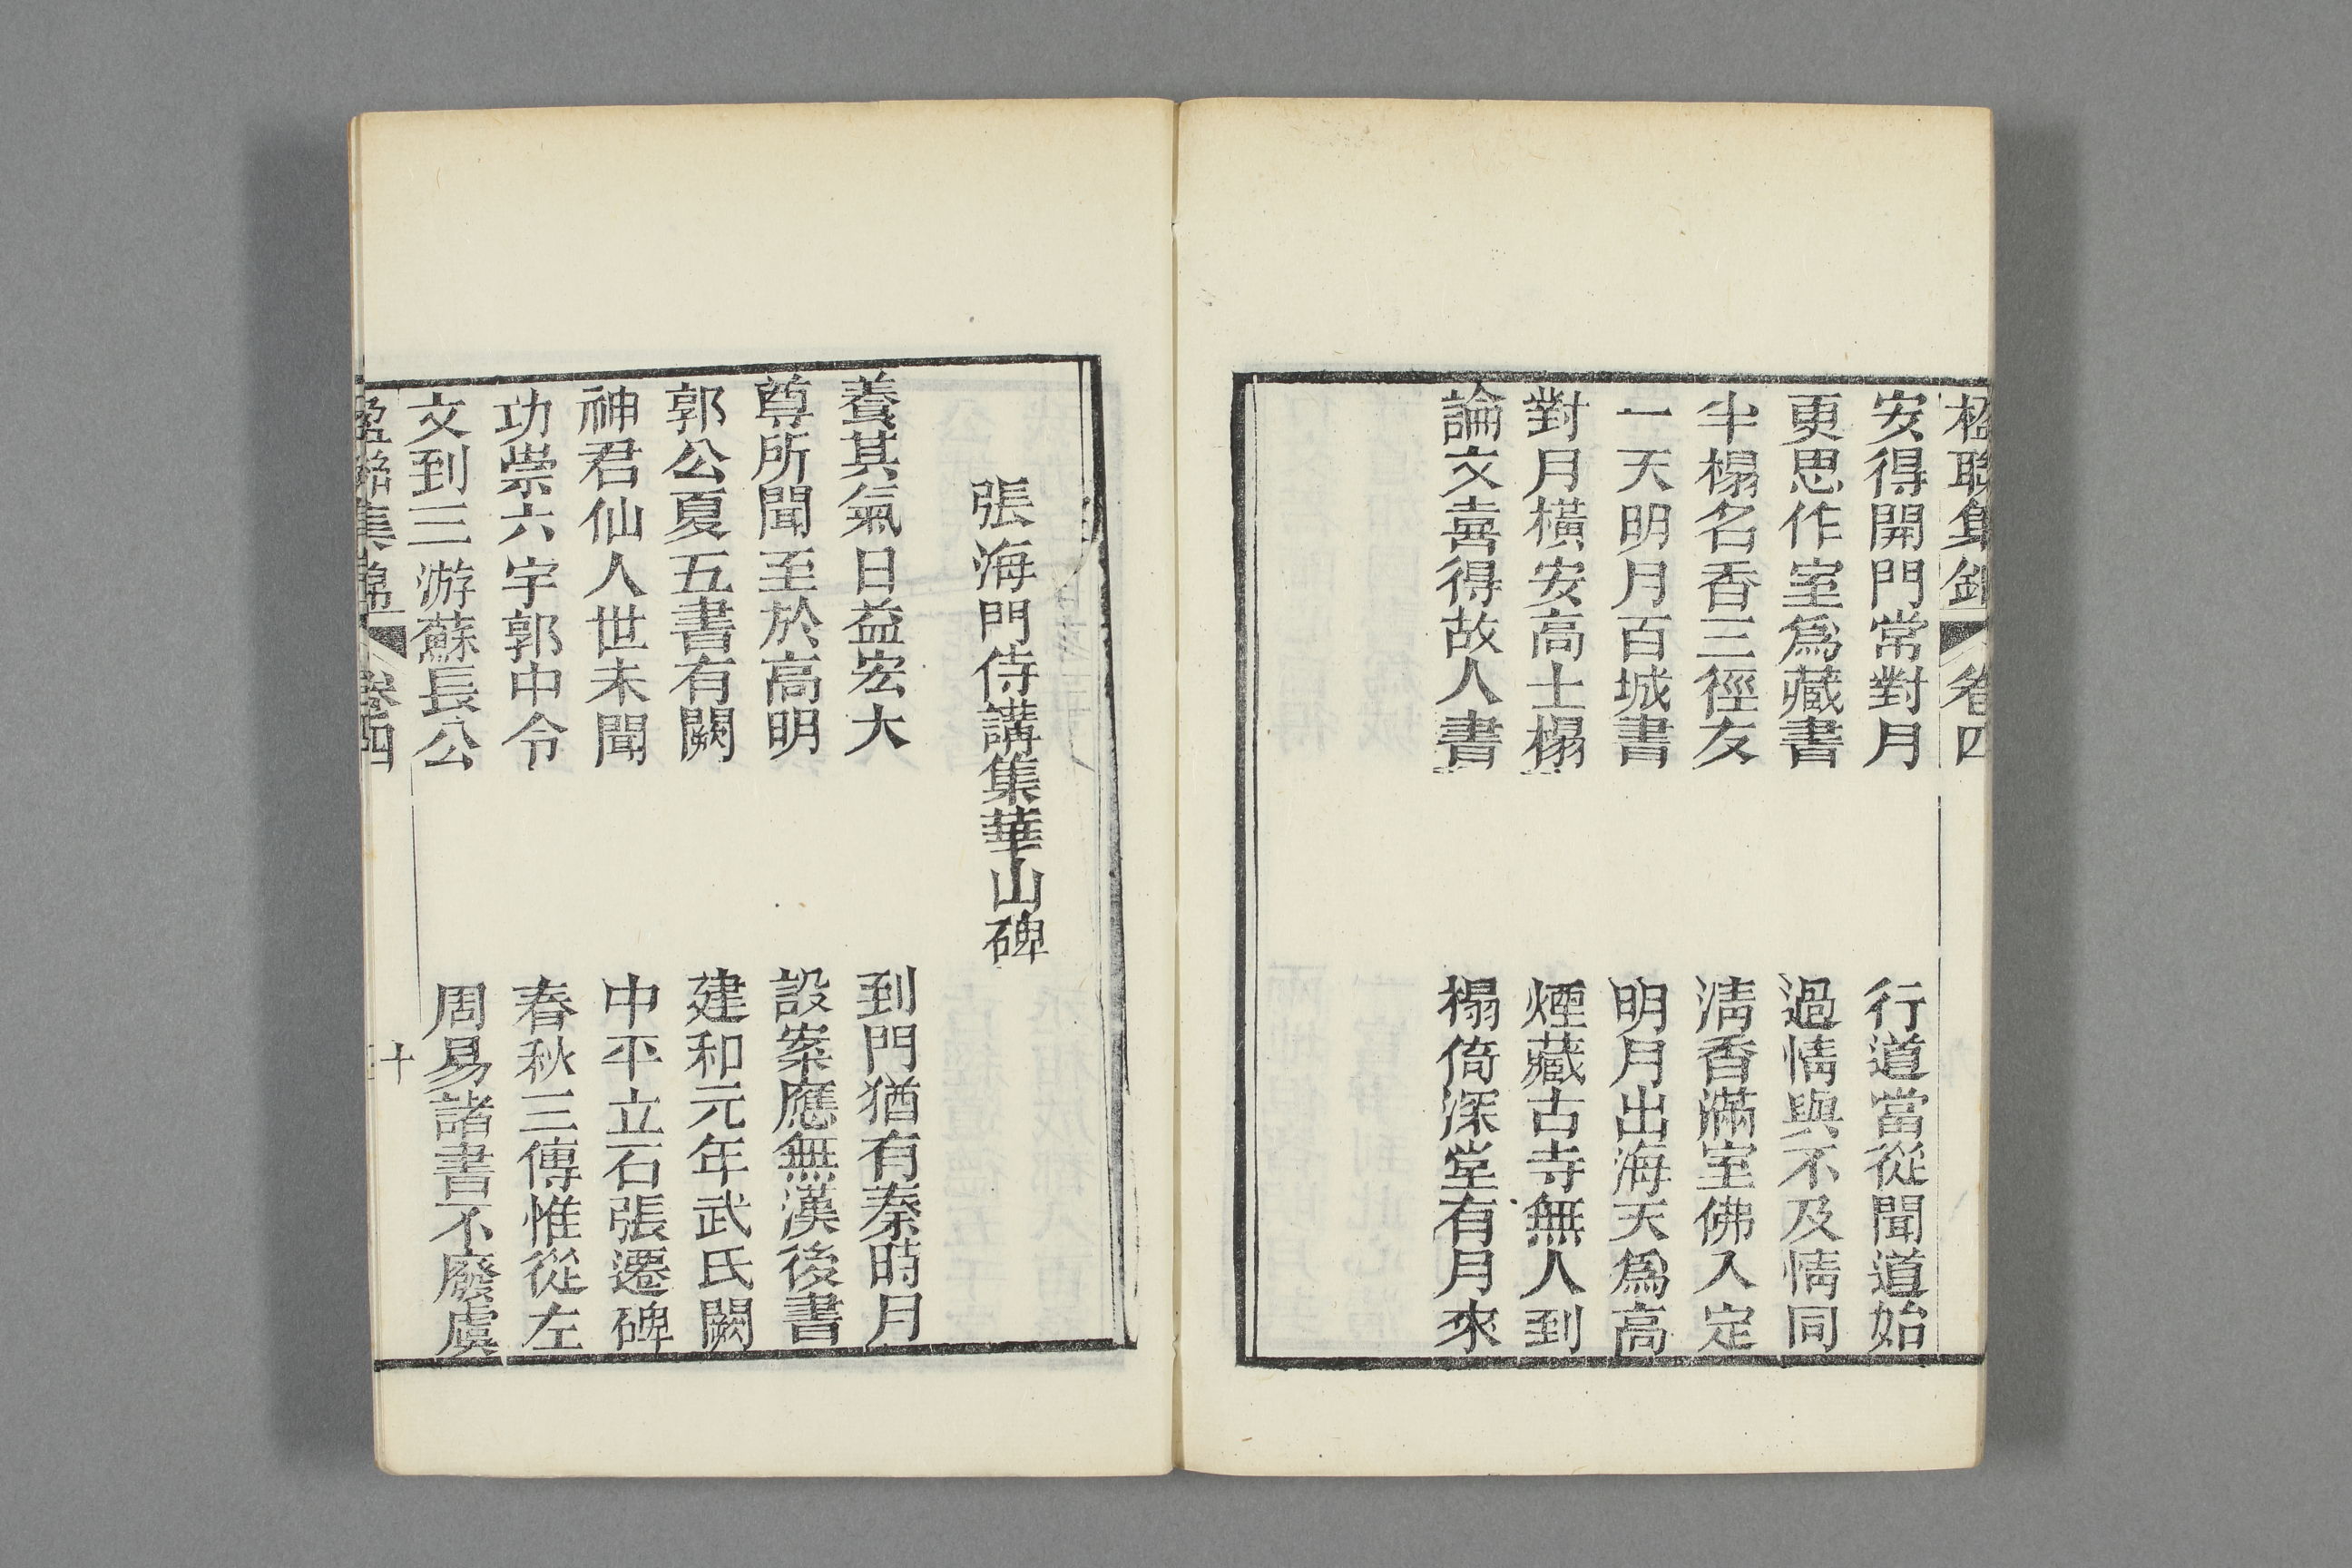 楹聯集錦 卷四
安得開門常對月 行道當從聞道始
更思作室爲藏書 過情與不及情同
半榻名香三徑友 淸香滿室佛入定
一天明月百城書 明月出海天爲高
對月橫安高士榻 煙藏古寺無人到
論文喜得故人書 榻倚深堂有月來
張海門侍講集華山碑
養其氣日益宏大 到門猶有秦時月
尊所聞至於高明 設案應無漢後書
郭公夏五書有闕 建和元年武氏闕
神君仙人世未聞 中平立石張遷碑
功崇六宇郭中令 春秋三傳惟從左
文到三游蘇長公 周易諸書不廢虞
楹聯集錦 卷四 十